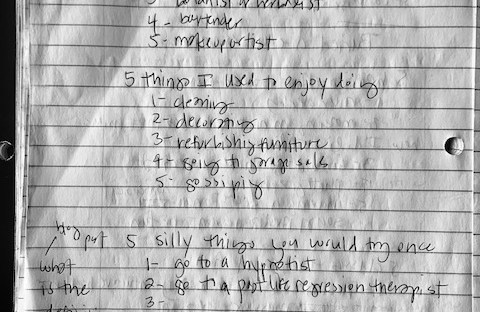 4 - bartender
5 - makeup artist
5 things I used to enjoy doing
1 - cleaning
2 - decorating
3 - refurbishing furniture
4 - going to garage sales
5 - gossiping
put 5 silly things you would try once
what 1 - go to a hypnotist
is the 2 - go to a past life regression therapist
3 -